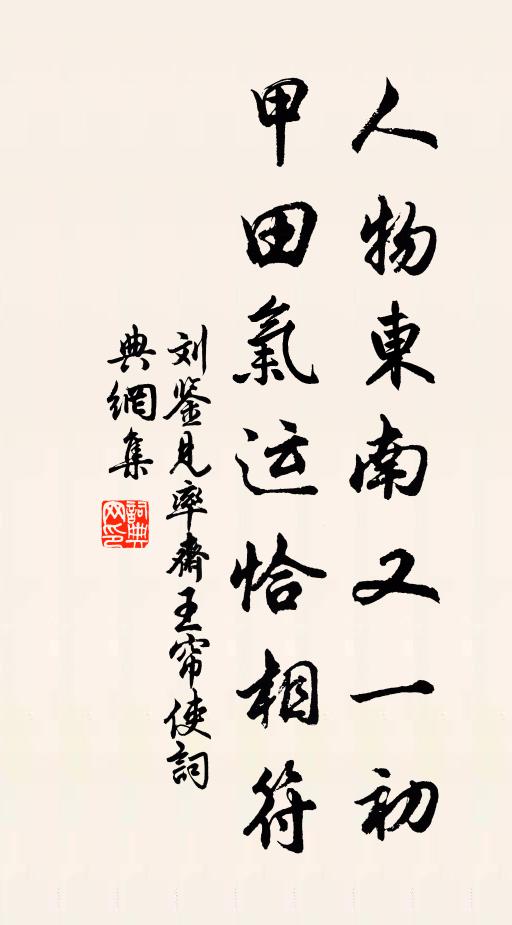 人物東南又一初
甲田氣运恰相符
刘鉴見率齋王帘使詞
典網集
詞典网印